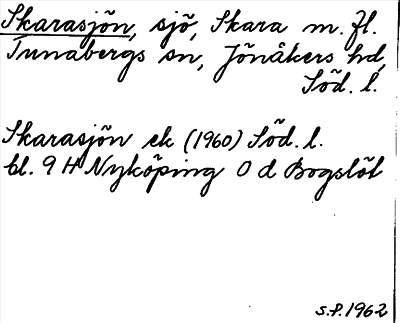 Skarasjön, sjö, Skara m. fl.
Tunabergs sn, Jönåkers hd,
Söd. l.
Skarasjön ek (1960) Söd. l.
bl. 9 H Nyköping 0 d Bogslöt
S.P. 1962